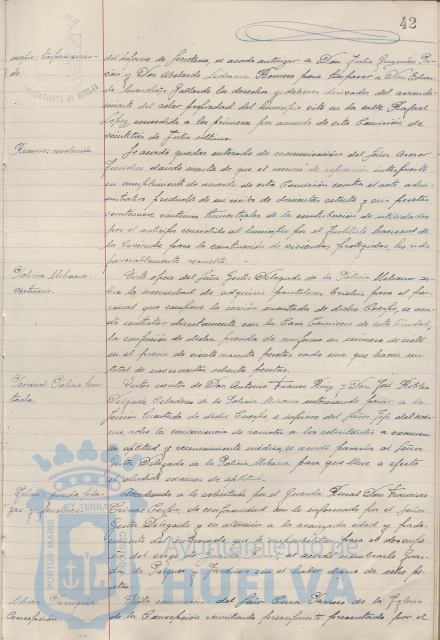 42
del informe de Secretaría, se acordó autorizar a Don Julio Guzmán
y Don Abelardo Ledesma Romero para traspasar a Don
Fernández Gallardo los derechos y deberes derivados del
miento del solar propiedad del municipio sito en la calle Rafael
López, concedido a los primeros por acuerdo de esta Comisión de
de Julio último.
Recurso: resolución.
Se acordó quedar enterada de comunicación del Señor Asesor
Jurídico dando cuenta de que el recurso de reposición interpuesto
en cumplimiento de acuerdo de esta Comisión contra el acto admi-
nistrativo producto de un recibo de
de la contribución de utilidades
por el anticipo concedido al municipio por el Instituto Nacional de
la Vivienda para la construcción de viviendas protegidas, ha sido
favorablemente resuelto.
Policía Urbana:
vestuario.
Visto oficio del Señor Gestor Delegado de la Policía Urbana so-
bre la necesidad de adquirir pantalones para el per-
sonal que compone la sección montada de dicho Cuerpo, se acor-
dó contratar directamente con la Casa de esta Ciudad,
la confección de dicha prenda de uniforme en número de siete
en el precio de ciento cuarenta pesetas cada una que hacen un
total de novecientas ochenta pesetas.
Personal: Policía Mon-
tada.
Vistos escritos de Don Antonio Franco Ruiz y Don José Robles
Delgado, Celadores de la Policía Urbana interesando pasar a la
sección montada de dicho Cuerpo e informe del Señor Jefe del mis-
mo, sobre la conveniencia de someter a los solicitantes a examen
de aptitud y reconocimiento médico, se acordó pasarlos al Señor
Gestor Delegado de la Policía Urbana para que lleve a efecto
el examen de aptitud.
Accediendo a lo solicitado por el Guarda Rural Don Francisco
de conformidad con lo informado por el Señor
Gestor Delegado y en atención a la avanzada edad y pade-
cimiento del interesado que le imposibilitan para el desempe-
ño del cargo, se acordó nombrarlo Guar-
da de Parques y Jardines con el haber diario de ocho pe-
setas.
Obras: Parroquia
Concepción
Vista comunicación del Señor Cura Párroco de la Iglesia
de la Concepción remitiendo presupuesto presentado por el
PORTUS MARIS ET TERRAE
Ayuntamiento de
HUELVA